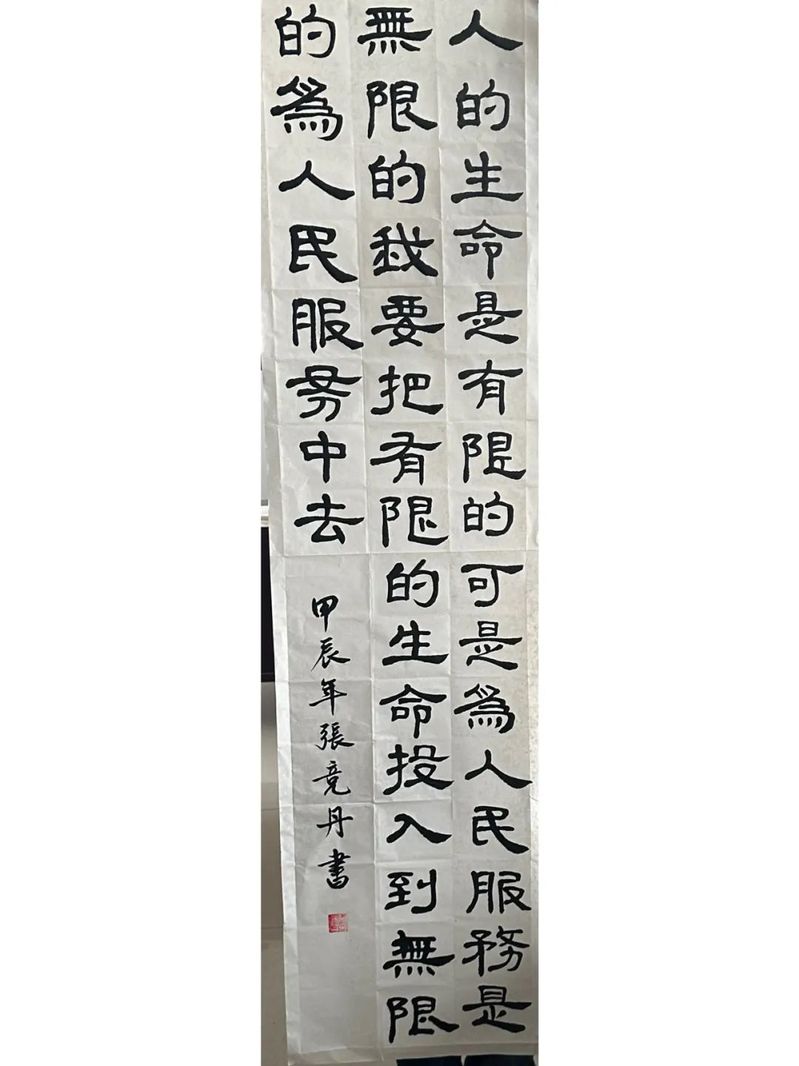 人的生命是有限的可是爲人民服務是
無限的我要把有限的生命投入到無限
的爲人民服务中去
甲辰年張竞丹書